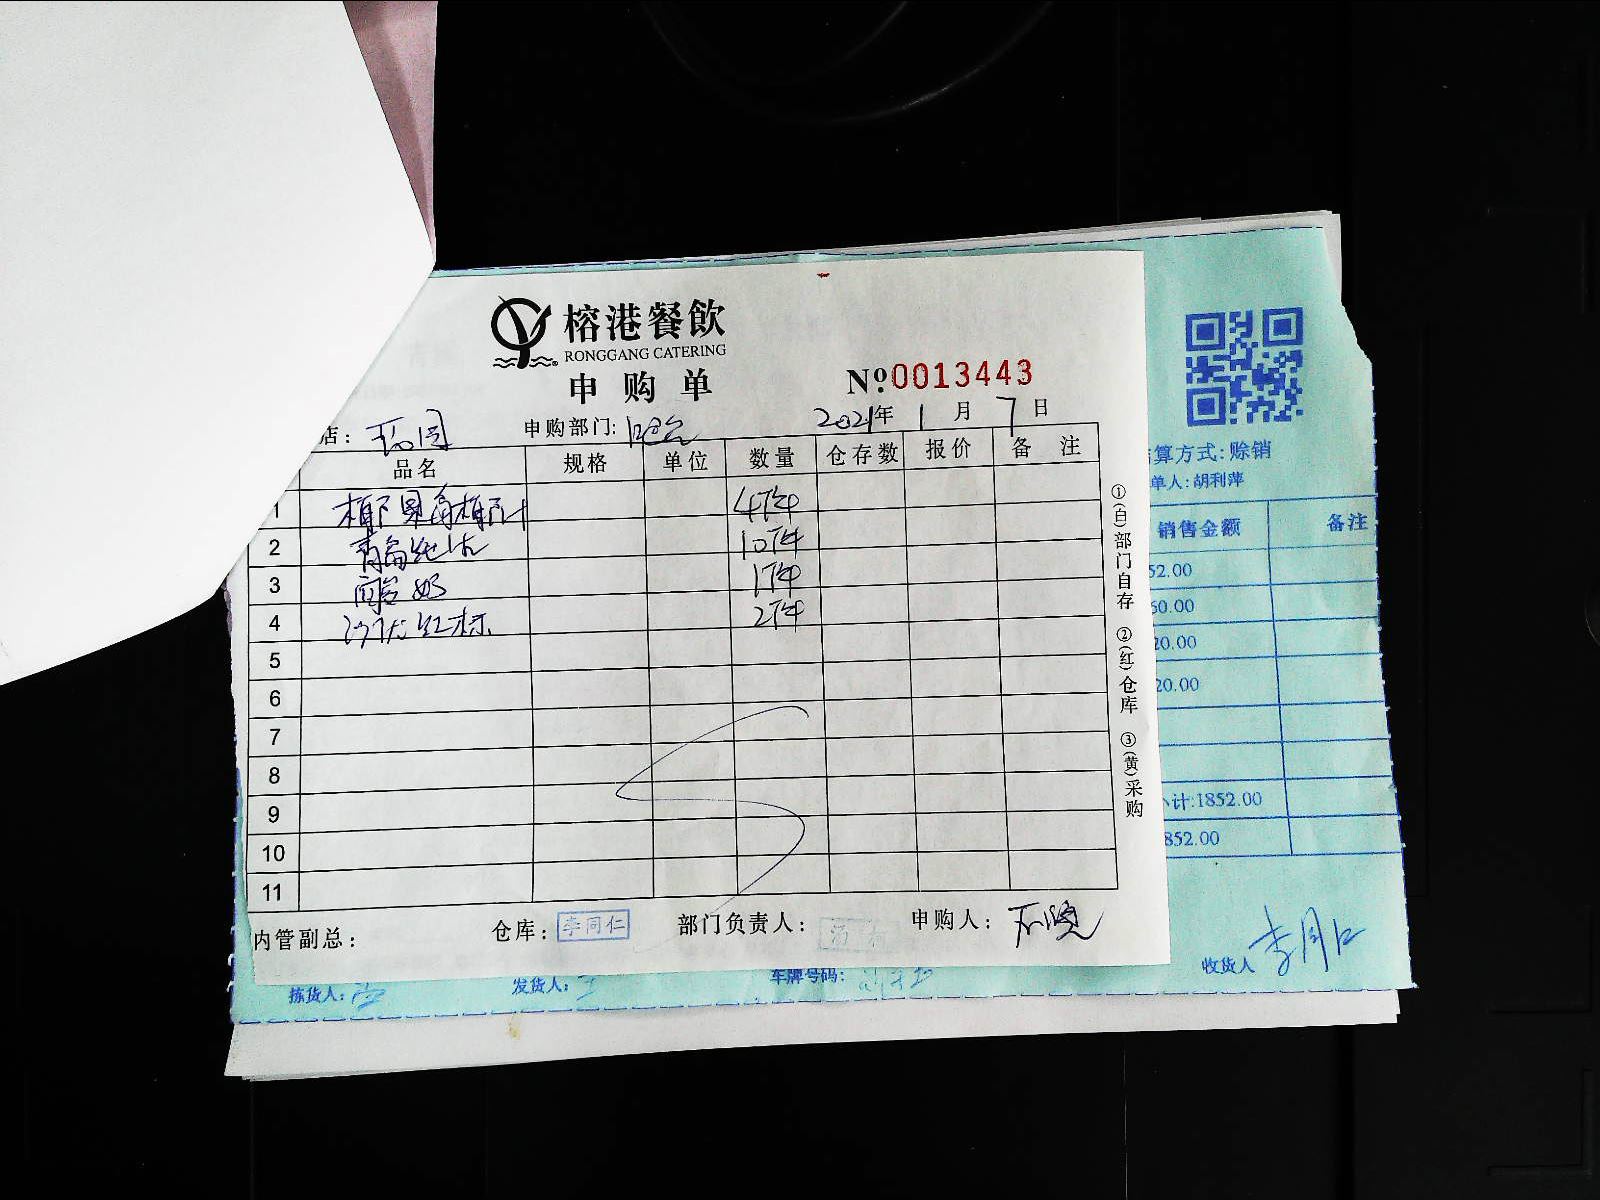 榕港餐飲
RONGGANG CATERING
申购单
№0013443
店:
申购部门: 吧台
2021年 1月 7日
品名 规格 单位 数量 仓存数 报价 备注
1 椰果 椰汁 4件
2 10件
3 酸奶 1件
4 红标 2件
5
6
7
8
9
10
11
内管副总:
仓库: 李同仁
部门负责人:
申购人:
①(白)部门自存 ②(红)仓库 ③(黄)采购
算方式:赊销
单人:胡利萍
销售金额 备注
52.00
60.00
20.00
20.00
计:1852.00
852.00
拣货人:
发货人:
车牌号码:
收货人